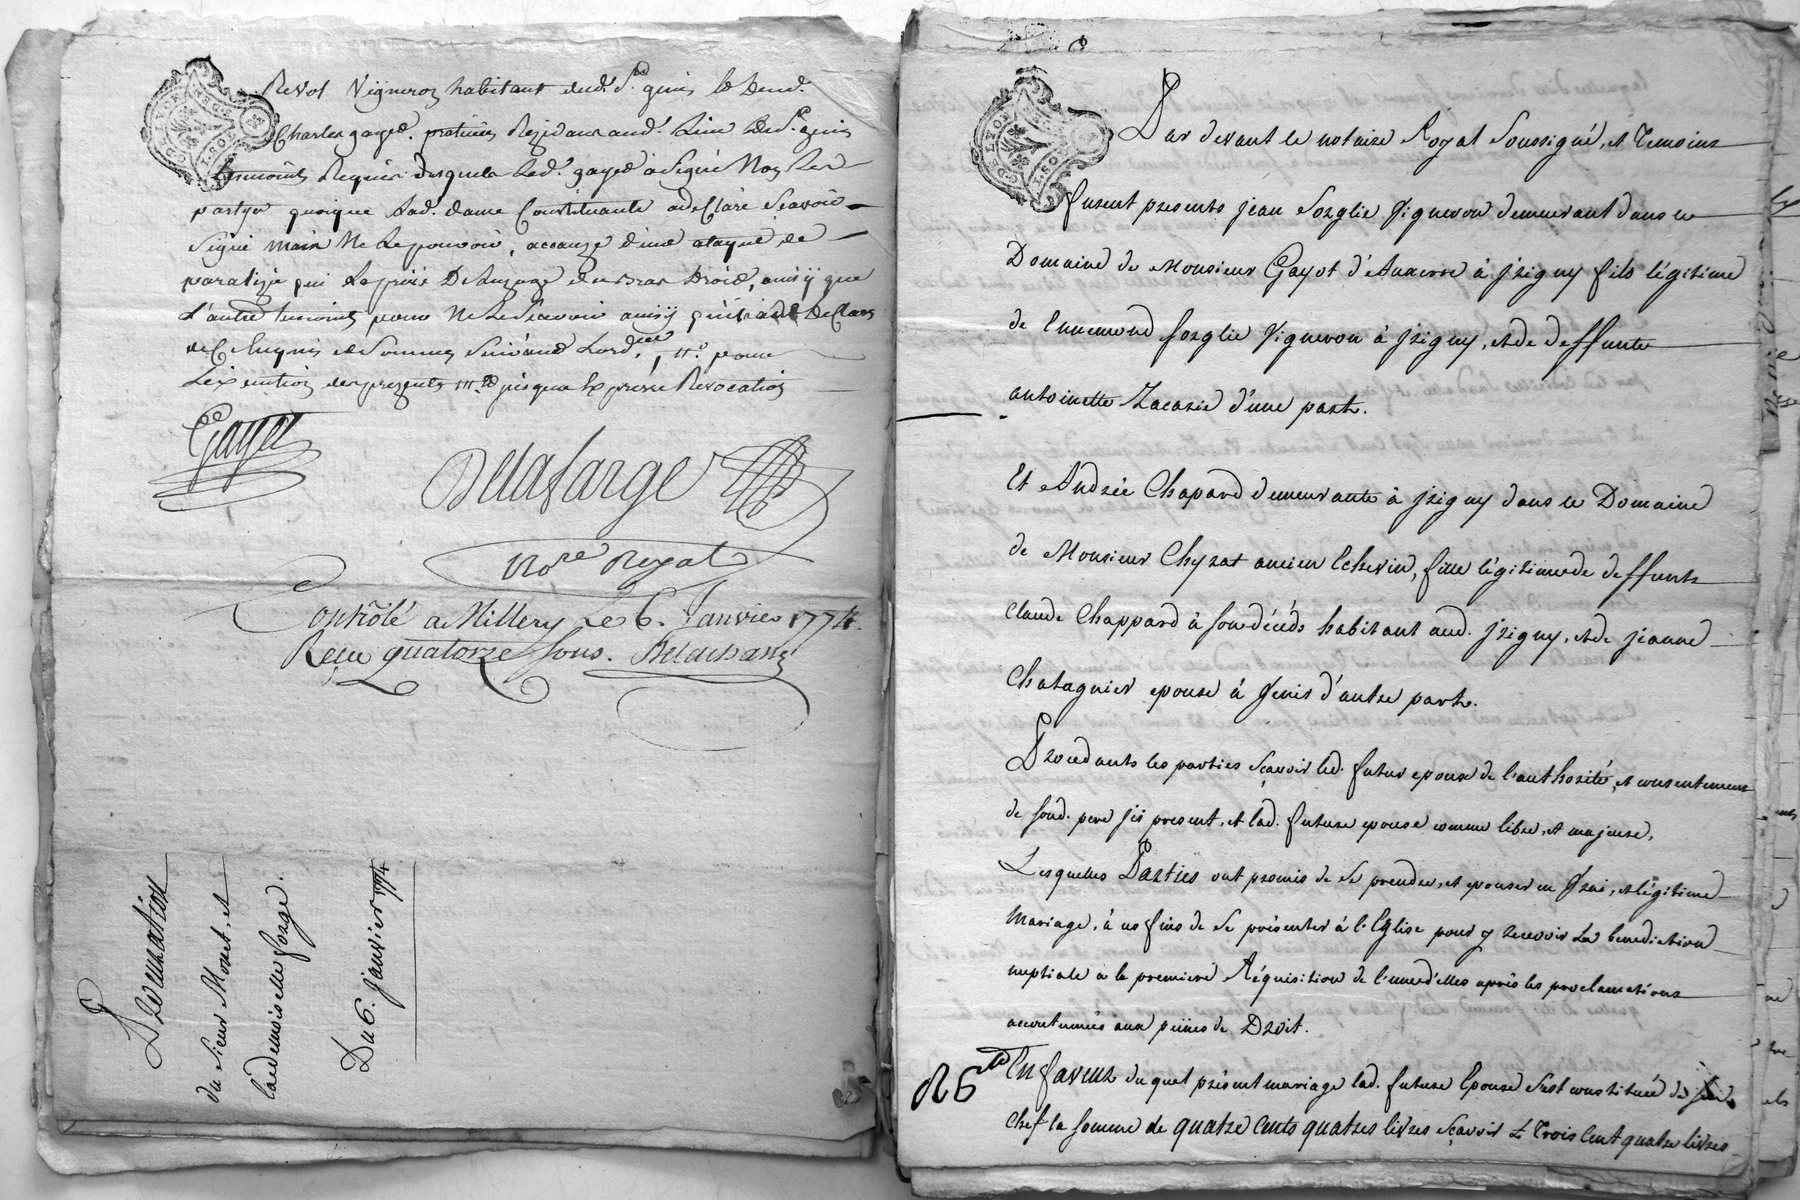 Revol Vigneron habitant dud. St. genis le Deud.
Charles gayet. praticien Rezidant aud. Lieu De St. genis
temoins Requis desquels Led. gayet a Signé Non Les
partyes quoique Lad. dame Constituante a declaré Scavoir
Signé mais Ne Le pouvoir, accauze d'une ataque de
paralizie qui La privé De Luzage du bras Droit, ainsy que
L'autre temoins pour Ne Le Scavoir ainsy qu'il a declare
de Ce Enquis et Sommes Suivant Lord.ce, pour
Lexecution des presentes jusqua Expresse Revocation
Gayet
Delafarge
Nore Royal
Contrôlé a Millery Le 6. Janvier 1774.
Reçu quatorze sous. Delachass
Procuration
du Sieur Monet, et
la demoiselle forge.
Du 6. janvier 1774
GDELYON
Par devant le notaire Royal Soussigné, et Temoins
furent presents jean forglie Vigneron demeurant dans le
Domaine de Monsieur Gayot d'Auxerre à jrigny fils légitime
de Ennemond forglie Vigneron à jrigny, et de deffunte
antoinette Zacarie d'une part.
Et Andrée Chapard demeurante à jrigny dans le Domaine
de Monsieur Cheynat ancien Echevin, fille légitime de deffunt
Claude Chappard à son décéds habitant aud. jrigny, et de jeanne
Chatagnier epouse à d'autre part.
Procedants les parties Sçavoir led. futur epoux de l'authorité, et consentement
de sond. pere jci present, et lad. future epouse comme libre, et majeure,
Lesquelles Parties ont promis de se prendre, et epouser en Vrai, et légitime
Mariage, à ces fins de se présenter à l'Eglise pour y recevoir La benediction
nuptiale à la premiere Réquisition de l'une d'elles après les proclamations
accoutumées aux peines de Droit.
En faveur du quel présent mariage lad. future Epouse s'est constituée de son
Chef la somme de quatre Cents quatres livres sçavoir Trois Cent quatre livres